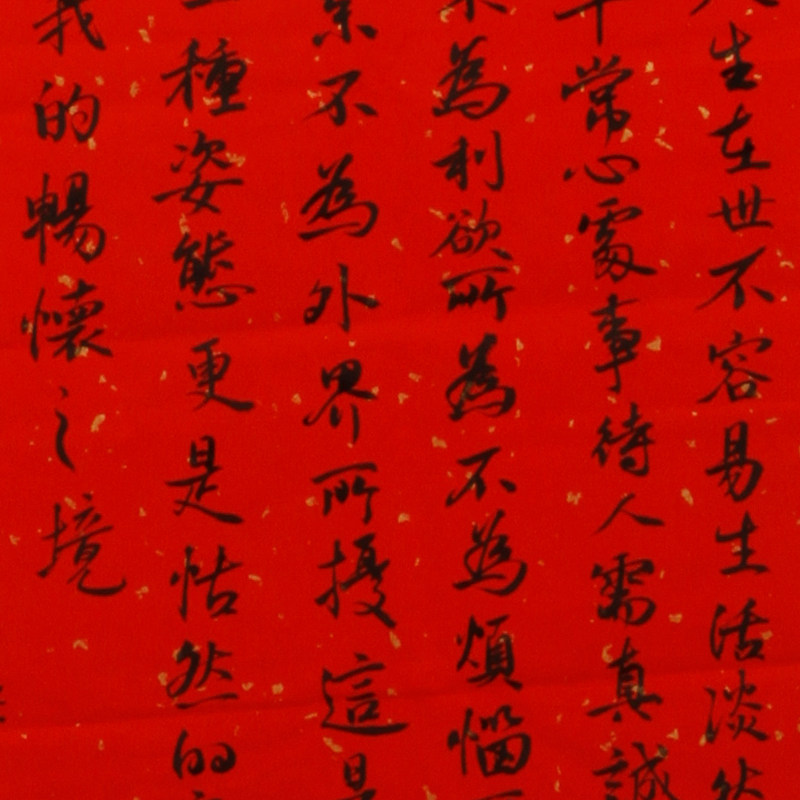 人生在世不容易生活淡然
平常心處事待人需真誠
為利欲所為不為煩惱
不為外界所擾這是
一種姿態更是怡然的
我的暢懷之境